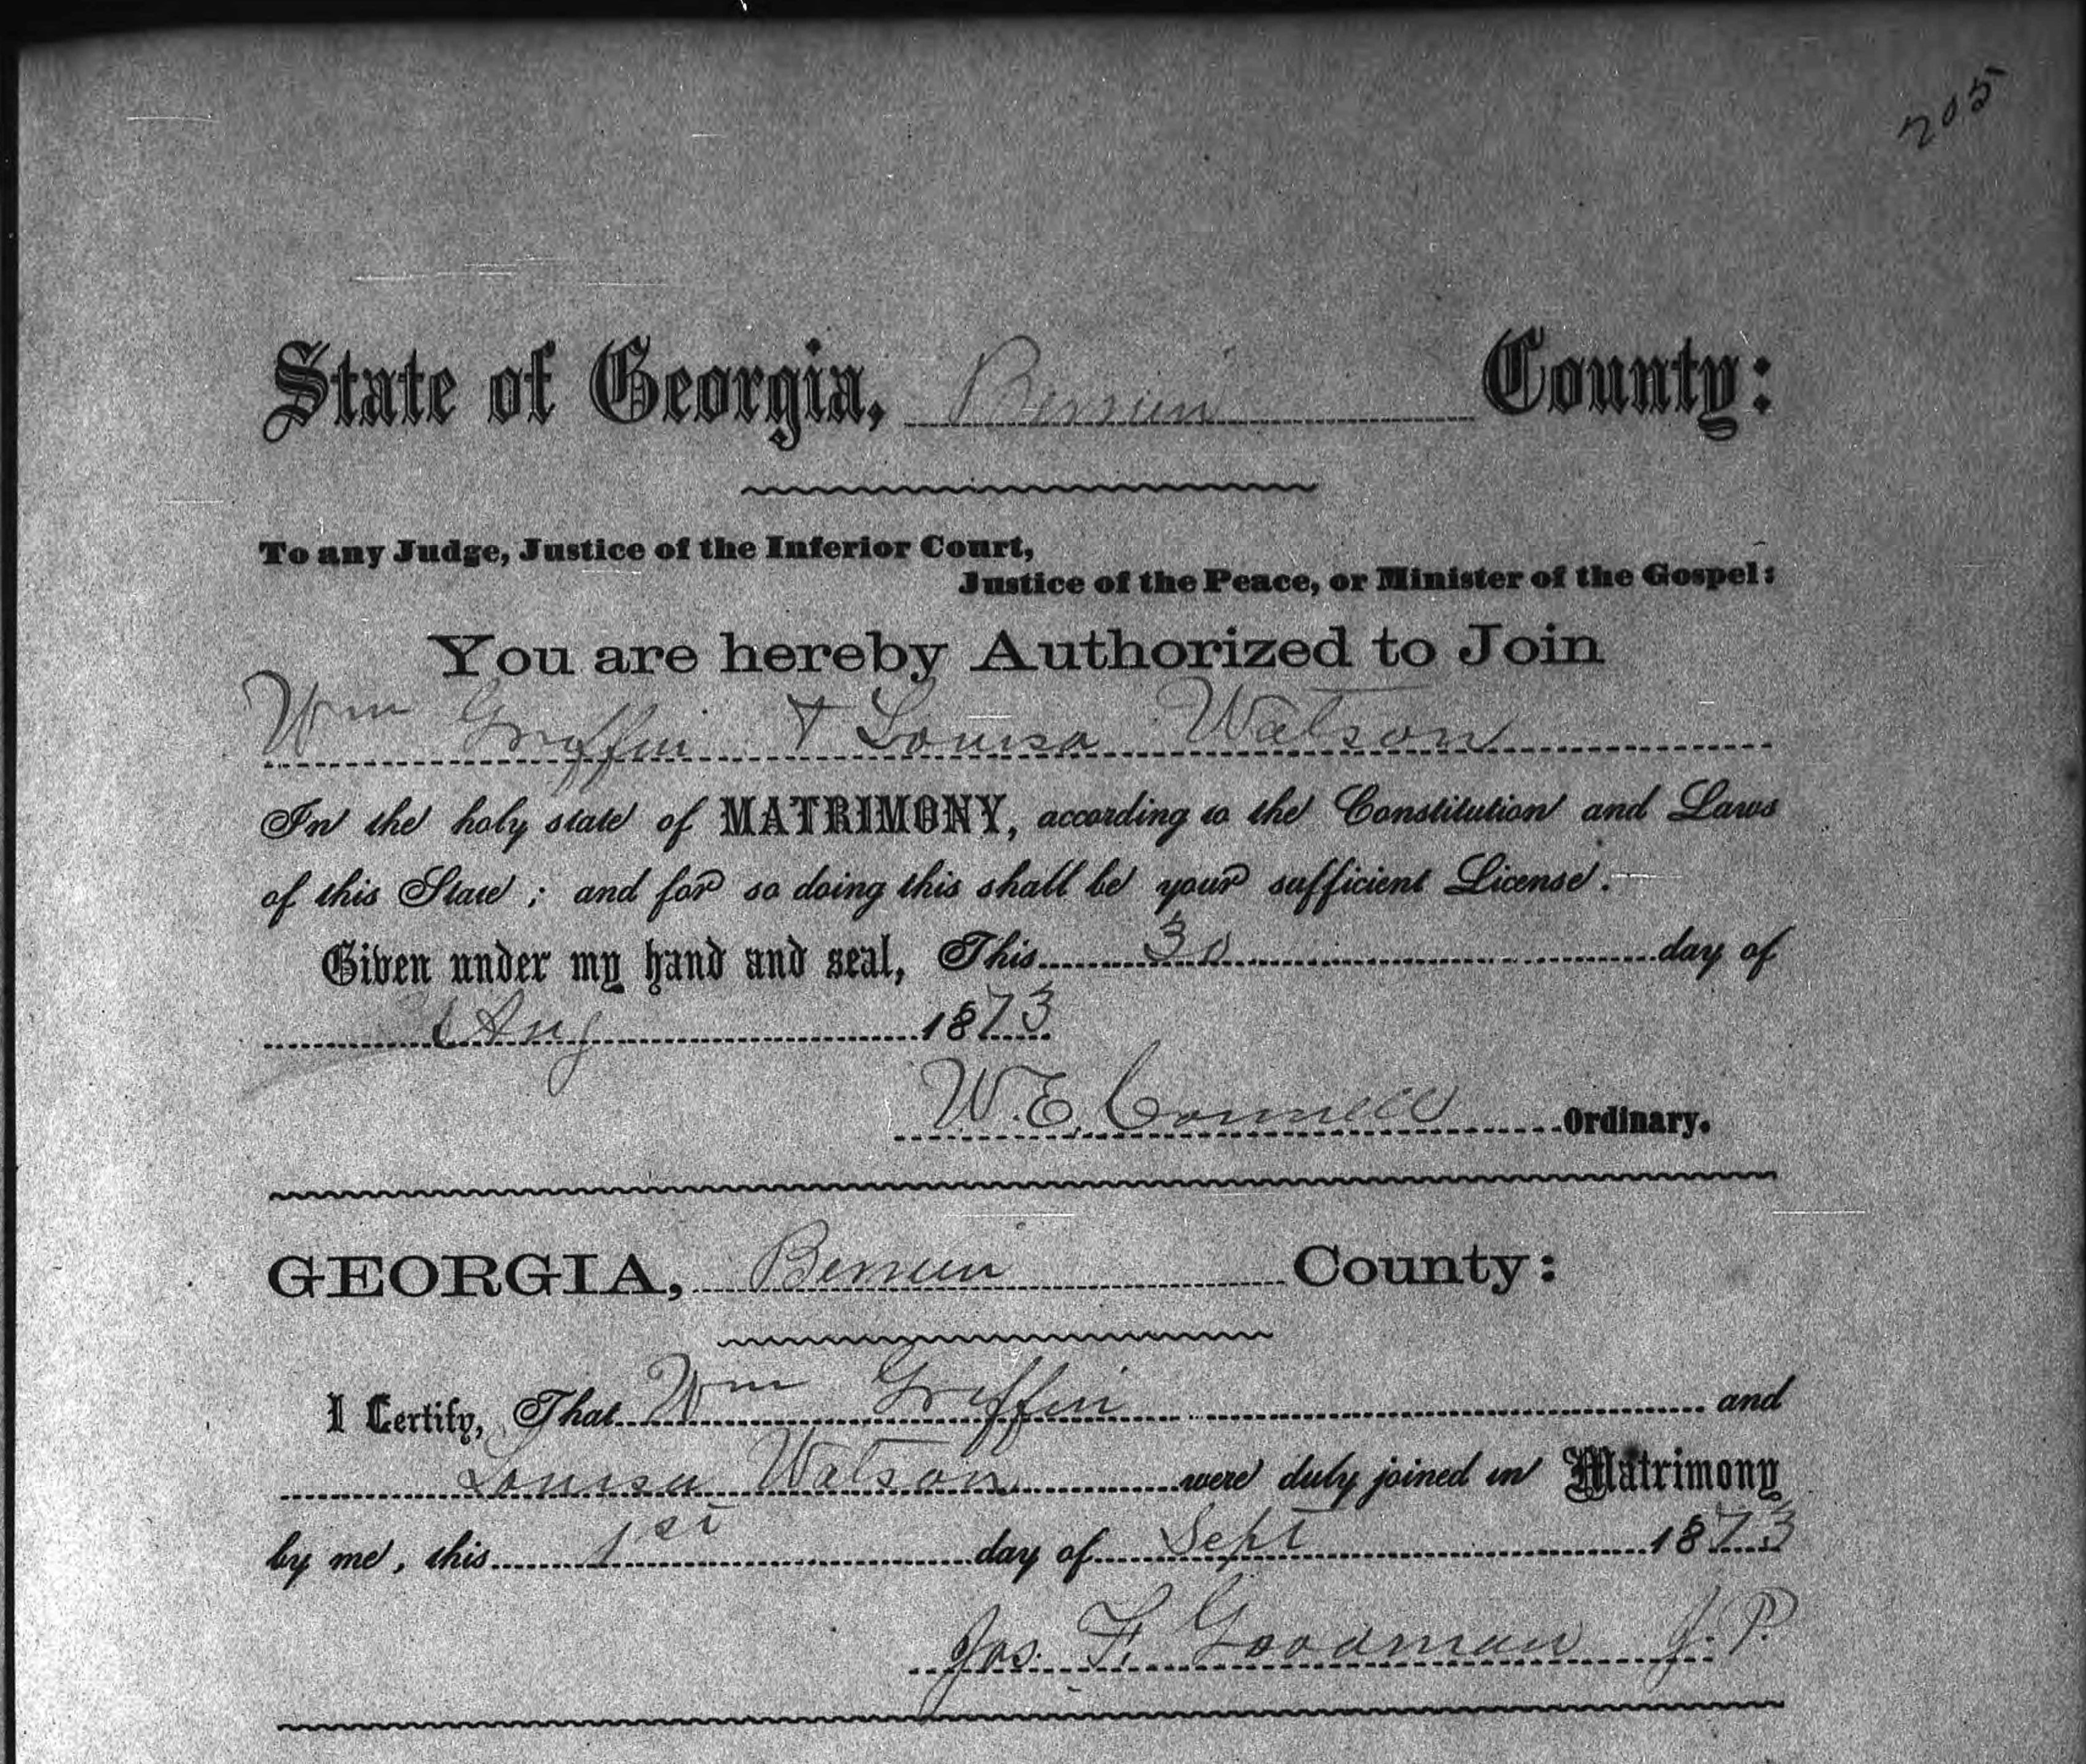 205
State of Georgia, Berrien County:
To any Judge, Justice of the Inferior Court,
Justice of the Peace, or Minister of the Gospel:
You are hereby Authorized to Join
Wm Griffin & Louisa Watson
In the holy state of MATRIMONY, according to the Constitution and Laws
of this State; and for so doing this shall be your sufficient License.
Given under my hand and seal, This 30 day of
Aug 1873
W. E. Connell Ordinary.
GEORGIA, Berrien County:
I Certify, That Wm Griffin and
Louisa Watson were duly joined in Matrimony
by me, this 1st day of Sept 1873
Jas. F. Goodman J. P.